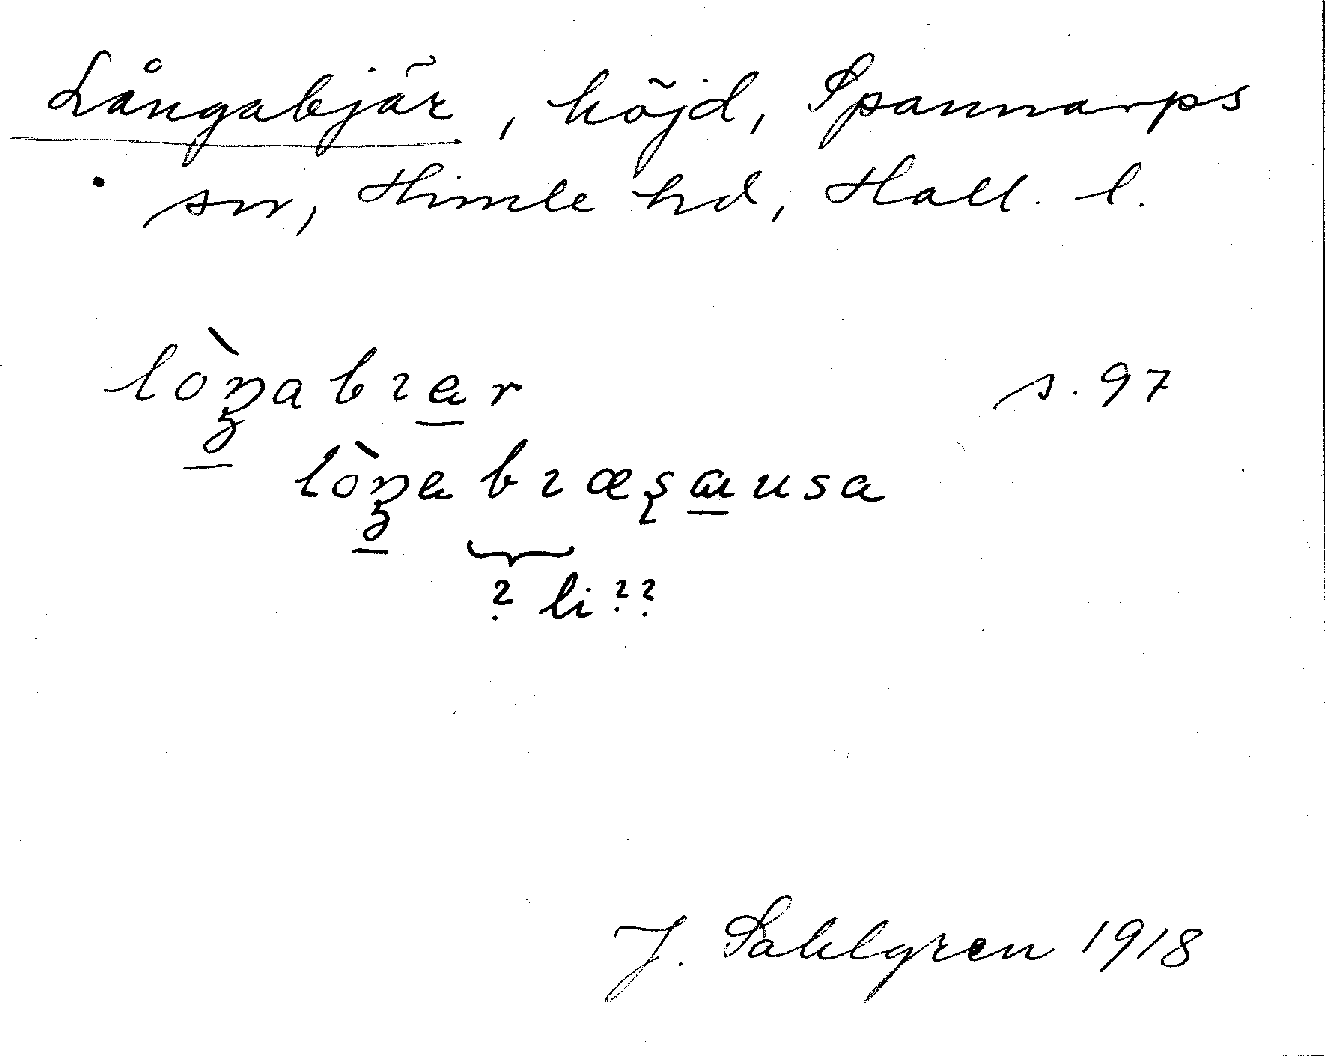 Långabjär, höjd, Spannarps
sn, Himle hd, Hall. l.
lòŋabıær s. 97
lòŋabıæʂausa
? li ??
J. Sahlgren 1918